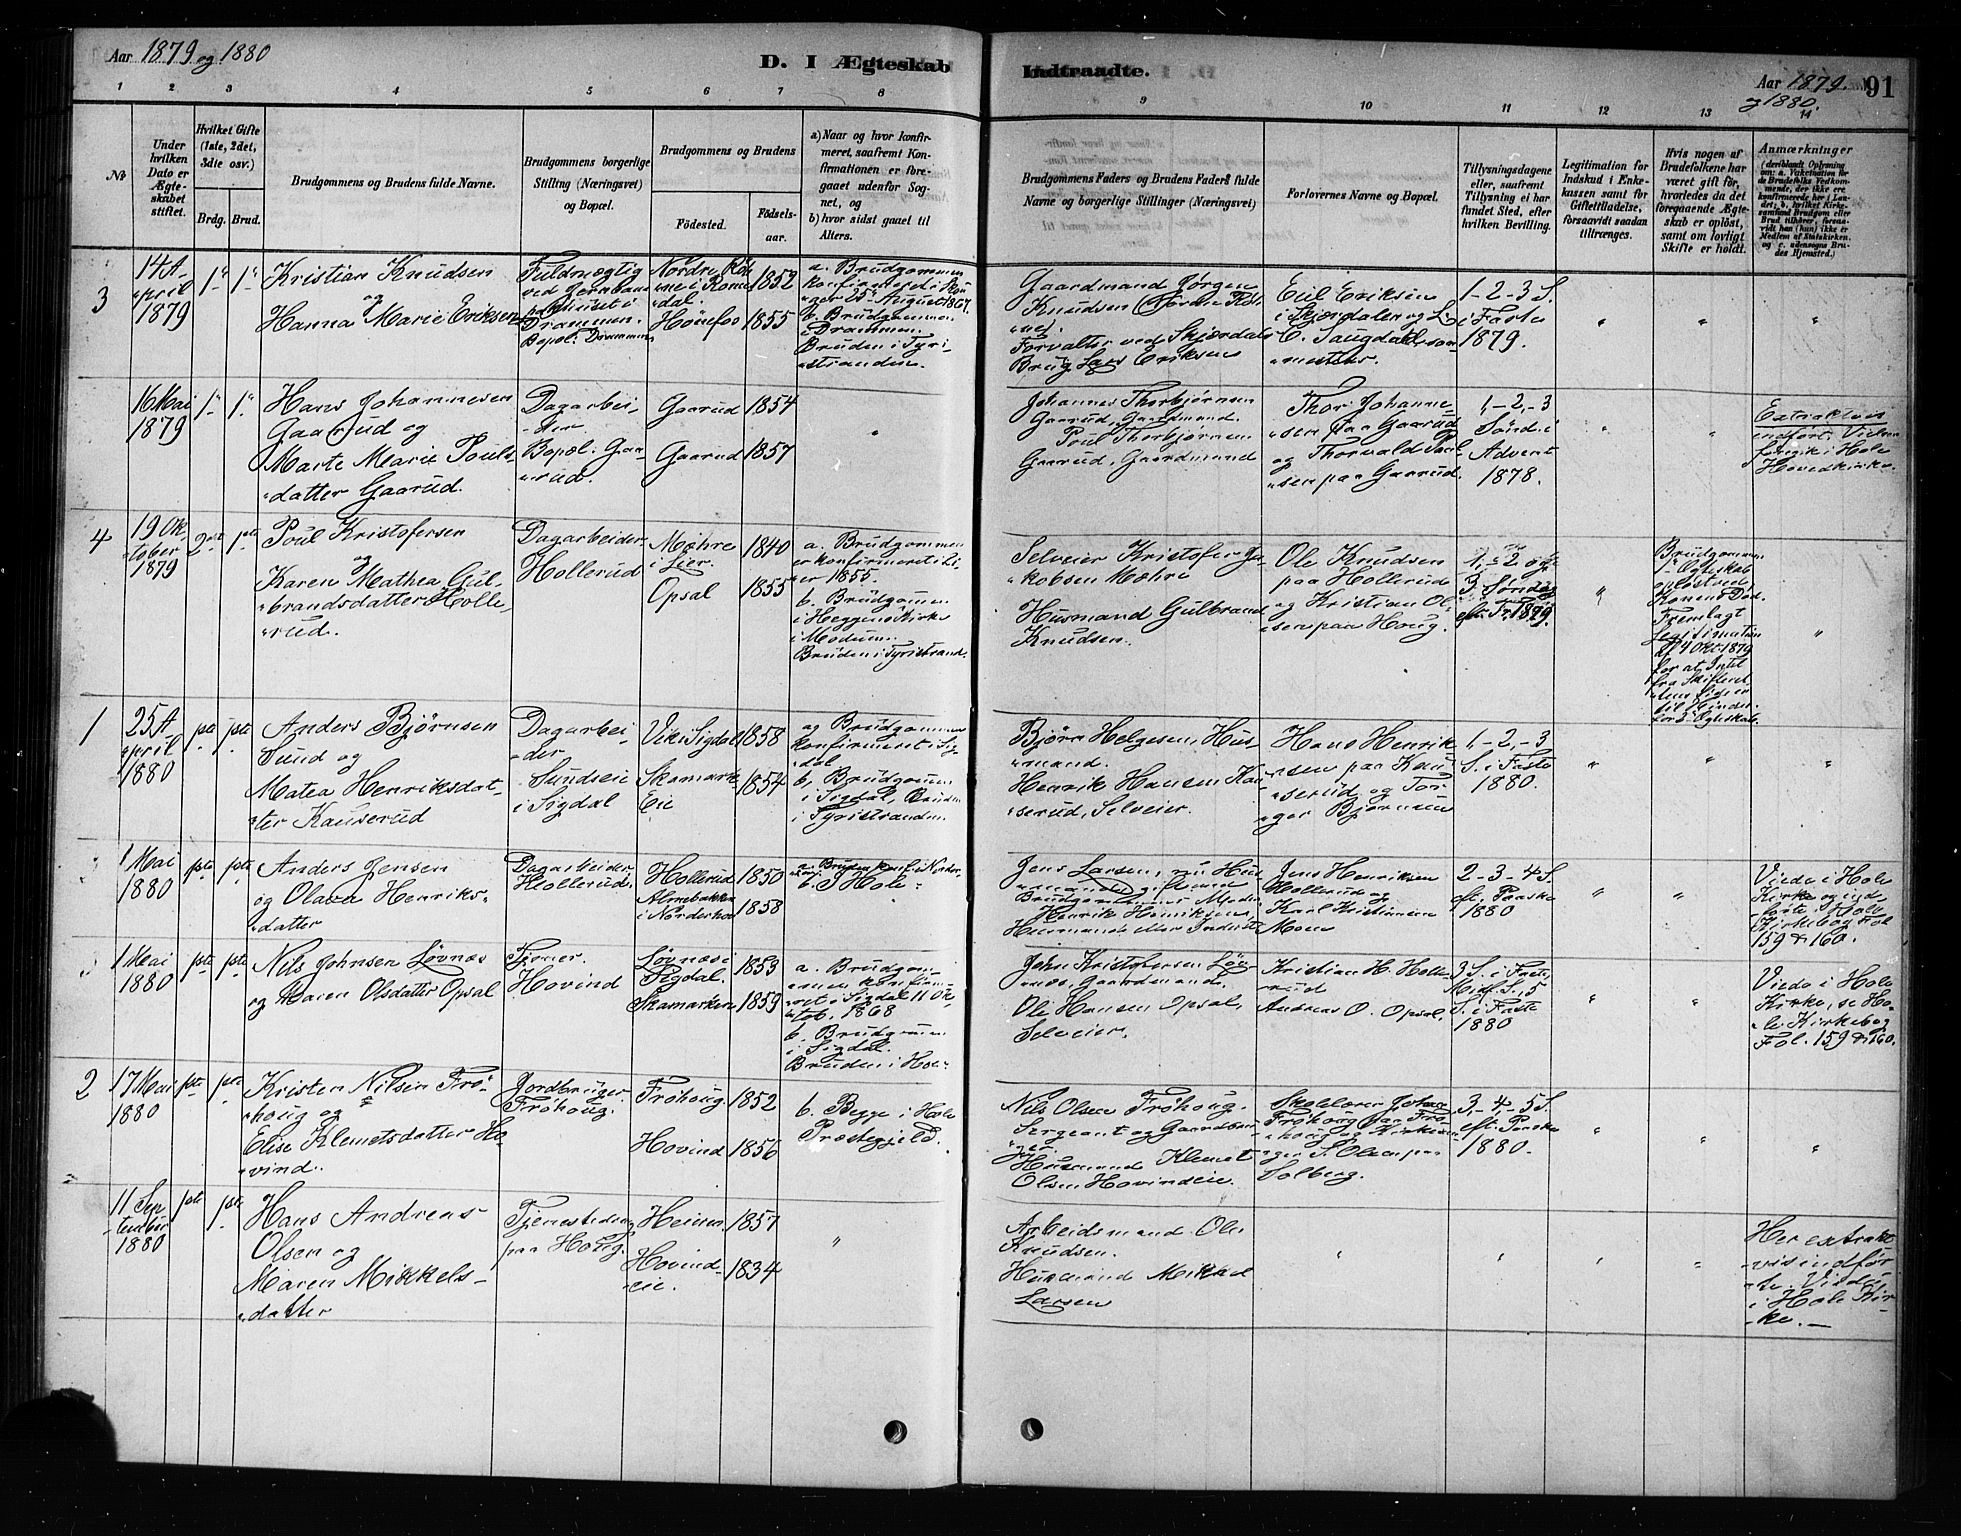 Aar 1879 og 1880
D. I Ægteskab
Indtraadte.
Aar 1879.
og 1880.
91
1 2 3 4 5 6 7 8
9 10 11 12 13 14
No
Under hvilken Dato er Ægteskabet stiftet.
Hvilket Gifte (1ste, 2det, 3die osv.)
Brdg. Brud.
Brudgommens og Brudens fulde Navne.
Brudgommens borgerlige Stilling (Næringsvei) og Bopæl.
Brudgommens og Brudens
Fødested.
Fødselsaar.
a) Naar og hvor konfirmeret, saafremt Konfirmationen er foregaaet udenfor Sognet, og
b) hvor sidst gaaet til Alters.
Brudgommens Faders og Brudens Faders fulde Navne og borgerlige Stillinger (Næringsvei)
Forlovernes Navne og Bopæl.
Tillysningsdagene eller, saafremt Tillysning ei har fundet Sted, efter hvilken Bevilling.
Legitimation for Indskud i Enkekassen samt for Giftettilladelse, forsaavidt saadan tiltrænges.
Hvis nogen af Brudefolkene har været gift før, hvorledes da det foregaaende Ægteskab er opløst, samt om lovligt Skifte er holdt.
Anmærkninger
(deriblandt Oplysning om: a. Vaksination for de Brudefolks Vedkommende, der ikke ere konfirmerede her i Landet; b. hvilket Kirkesamfund Brudgom eller Brud tilhører, forsaavidt han (hun) ikke er Medlem af Statskirken, og c. udensogns Brudes Hjemsted.)
3
14 A-
pril
1879
1" 1"
Kristian Knudsen
og
Hanna Marie Eriksen
Fuldmægtig
ved
Drammen.
Bopæl: Drammen
Nordre
Hønefos
1852
1855
a. Brudgommen
konfirmeret i
25 August 1867.
b. Brudgommen
Drammen.
Bruden i Tyri-
stranden.
Gaardmand Jørgen
Knudsen
Forvalter ved Skjærdals
Brug Lars Eriksen
Emil Eriksen
i Skjærdalen og
1-2-3 S.
i Faste
1879.
16 Mai
1879
1" 1"
Hans Johannesen
Gaarud og
Marte Marie Pouls-
datter Gaarud.
Dagarbei-
der
Bopæl: Gaa-
rud.
Gaarud 1854
Gaarud 1857
Johannes Thorbjørnsen
Gaarud, Gaardmand.
Poul Thorbjørnsen
Gaarud, Gaardmand
Thor Johanne-
sen paa Gaarud
og Thorvald Poul-
sen paa Gaarud.
1,-2,-3
Sønd. i
Advent
1878.
indført. Vielsen
foregik i Hole
Hovedkirke.
4
19 Ok-
tober
1879
2det 1ste
Poul Kristofersen
og
Karen Mathea Gul-
brandsdatter Holle-
rud.
Dagarbeider.
Hollerud
Mæhre
i Lier.
Opsal
1840
1855
a. Brudgommen
er konfirmeret i Li-
er 1855.
b. Brudgommen
i Heggens Kirke
i Modum.
Bruden i Tyristrand.
Selveier Kristofer Ja-
kobsen Mæhre
Husmand Gulbrand
Knudsen.
Ole Knudsen
paa Hollerud
og Kristian Ol-
sen paa Houg.
1,-2 og
3 Søndag
eft. Tr. 1879.
Brudgommens
1' Ægteskab
opløst ved
Konens Død.
Fremlagt
Legitimation
af 4 Okt. 1879
for at Intet
fra Skifteret-
tens Side er
til Hinder
for 2' Ægteskab.
1
25 A-
pril
1880
1ste 1ste
Anders Bjørnsen
Sund og
Matea Henriksdat-
ter Kauserud
Dagarbei-
der
Sundseie
i Sigdal
Vik i Sigdal 1858
Skamark
Eie
1854
a. Brudgommen
konfirmeret i Sig-
dal
b. Brudgommen
i Sigdal, Bruden
i Tyristranden.
Bjørn Helgesen, Hus-
mand.
Henrik Hansen Kau-
serud, Selveier.
Hans Henrik-
sen paa Kau-
serud og Tor-
ger Bjørnsen
1,-2,-3
S. i Faste
1880.
1 Mai
1880
1ste 1ste
Anders Jensen
og Olava Henriks-
datter
Dagarbeider
Hollerud.
Hollerud 1850
Almebakken
i Norderhov 1858
b. I Hole
Jens Larsen, nu Hus-
Henrik Henriksen,
Jens Henriksen
Hollerud og
Karl Kristiansen
Moen
2-3-4 S.
eft. Paaske
1880
Viede i Hole
Kirke og ind-
førte i Hole
Kirkebog Fol.
159 & 160.
1 Mai
1880
1ste 1ste
Nils Johnsen Løvnæs
og Maren Olsdatter Opsal
Tjener.
Hovind
Løvnæs i
Sigdal.
Skamarken
1853
1859
a. Brudgom-
men konfirme-
ret i Sigdal 11 Ok-
tob. 1868
b. Brudgommen
i Sigdal.
Bruden i Hole
John Kristofersen Løv-
næs, Gaardmand.
Ole Hansen Opsal,
Selveier.
Kristian H. Holle-
rud
Andreas O. Opsal.
3 S. i Faste,
Midf. S., 5
S. i Faste
1880
Viede i Hole
Kirke, se Ho-
le Kirkebog
Fol. 159 & 160.
2
17 Mai
1880
1ste 1ste
Kristen Nilsen Frø-
houg og
Elise Klemetsdatter Ho-
vind.
Jordbruger
Frøhoug.
Frøhoug. 1852
Hovind 1856
b. Begge i Hole
Præstegjeld.
Nils Olsen Frøhoug.
Sergeant og Gaardbru-
ger.
Husmand Klemet
Olsen Hovindeie.
Skolelærer Johan
Frøhoug paa Frø-
houg og Kirkesan-
ger S. Olsen paa
Solberg.
3,-4,-5 S.
eft. Paaske
1880.
11 Sep-
tember
1880
1ste 1ste
Hans Andreas
Olsen og
Maren Mikkels-
datter
Tjenestedreng
paa Houg.
Heieren 1857
Hovind-
eie.
1834
Arbeidsmand Ole
Knudsen.
Husmand Mikkel
Larsen
Her extrakt-
vis indfør-
te. Viede
i Hole Kir-
ke.